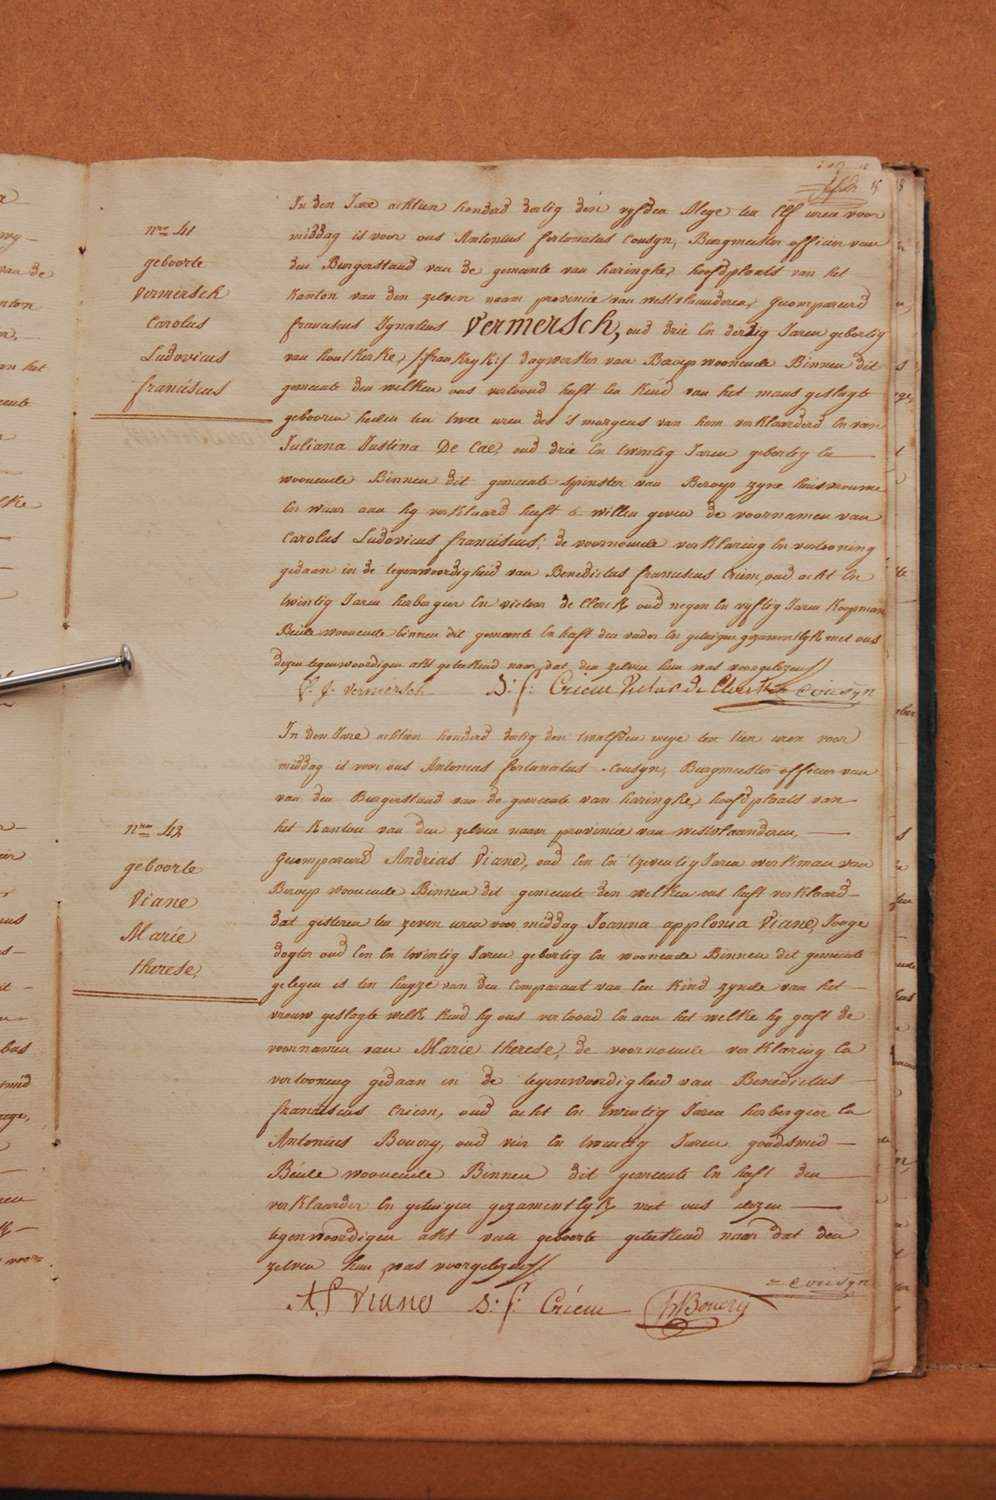 15
nro 41
geboorte
Vermersch
Carolus
Ludovicus
franciscus
In den Jare achtien honderd dertig den vyfden Meye ten Elf uren voor
middag is voor ons Antonius fortunatus Cousyn, Burgmeester officier van
den Burgerstaud van de gemeente van haringhe, hoofdplaats van het
Kanton van den zelven naam provincie van westvlaanderen, Gecompareerd
franciscus Ignatius Vermersch, oud drie En dertig Jaren geboortig
van houtkerke, /:frankryk:/ dagwerker van Beroep woonende Binnen dit
gemeente den welken ons vertoond heeft Een kind van het mans geslagte
gebooren heden ten twee uren des 's morgens van hem verklaarderd En van
Juliana Justina De Cae, oud drie En twintig Jaren geboortig En
woonende Binnen dit gemeente spinster van Beroep zyne huisvrouwe
En waar aan hy verklaard heeft te willen geven de voornamen van
Carolus Ludovicus franciscus; de voornoemde verklaring En vertooning
gedaan in de tegenwoordigheid van Benedictus franciscus Criem, oud acht En
twintig Jaren herbergier En victor de Clerck oud negen En vyftig Jaren Koopman
Beide woonende binnen dit gemeente En heeft den vader En getuigen gezamentlyk met ons
dezen tegenwoordigen akt geteekend naar dat den zelven hun was voorgelezen
f. J. Vermersch B: f: Criem Victor de Clerck Cousyn
nro 42
geboorte
Viane
Marie
therese,
In den Jare achtien honderd dertig den twalfden meye ten tien uren voor
middag is voor ons Antonius fortunatus Cousyn, Burgmeester officier van
van den Burgerstaud van de gemeente van haringhe, hoofdplaats van
het Kanton van den zelven naam provincie van westvlaanderen,
Gecompareerd Andrias Viane, oud En En tzeventig Jaren werkman van
Beroep woonende Binnen dit gemeente den welken ons heeft verklaard
dat gisteren ten zeven uren voor middag Joanna applonia Viane, Jonge
dogter oud Een En twintig Jaren geboortig En woonende Binnen dit gemeente
gelegen is ten huyze van den Comparant van Een Kind zynde van het
vrouw geslagte welk kind hy ons vertoond En aan het welke hy geeft de
voornamen van Marie therese, de voornoemde verklaring En
vertooning gedaan in de tegenwoordigheid van Benedictus
franciscus Criem, oud acht En twintig Jaren herbergier En
Antonius Bouery, oud vier En twintig Jaren goudsmid
Beide woonende Binnen dit gemeente En heeft den
verklaarder En getuigen gezamentlyk met ons dezen
tegenwoordigen akt van geboorte geteekend naar dat den
zelven hun was voorgelezen
Cousyn
A. f Viane B: f: Criem Bouery